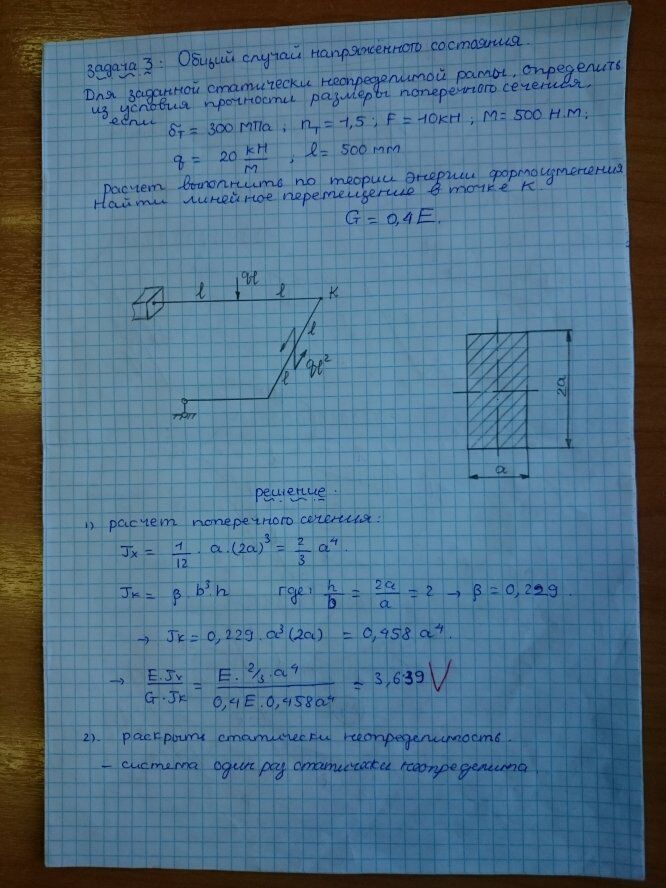 задача 3: Общий случай напряжённого состояния.
Для заданной статически неопределимой рамы, определить
из условия прочности размеры поперечного сечения,
если σт = 300 МПа ; nт = 1,5 ; F = 10 кН ; M = 500 Н.М ;
q = 20 кН/м , l = 500 мм
Расчет выполнить по теории энергии формоизменения
Найти линейное перемещение в точке К.
G = 0,4E.
l ql l K
l
l ql²
2a
a
решение.
1) расчет поперечного сечения:
Jx = 1/12 . a.(2a)³ = 2/3 a⁴.
Jк = β . b³.h где: h/b = 2a/a = 2 → β = 0,229.
→ Jк = 0,229.a³(2a) = 0,458 a⁴.
→ E.Jx/G.Jк = E.2/3.a⁴/0,4E.0,458a⁴ = 3,639 V
2). раскрыть статически неопределимость.
- система один раз статически неопределима.